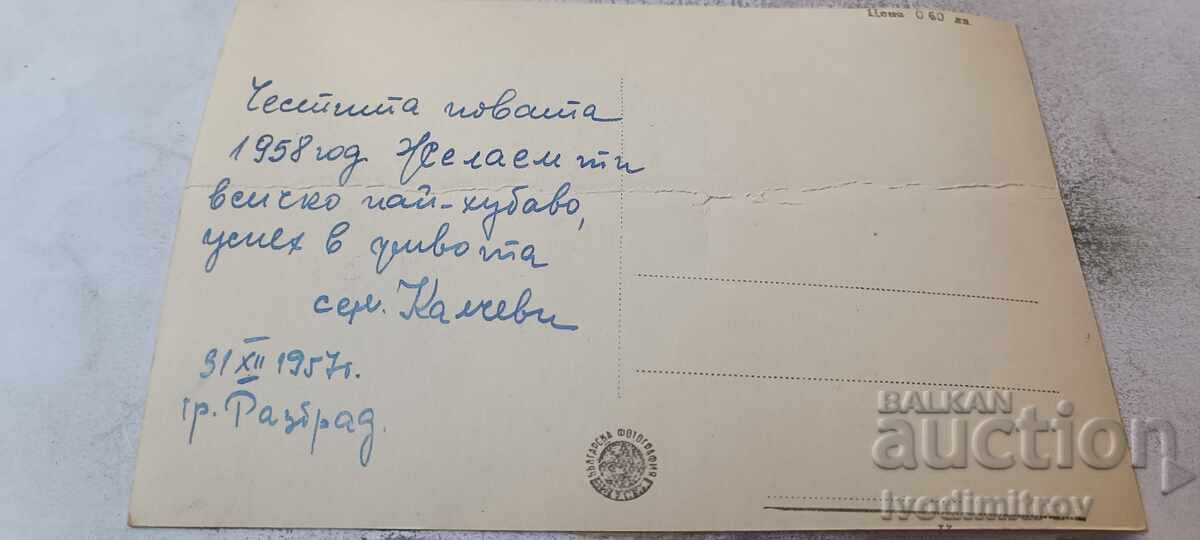 Цена 0 60 лв
Честита новата
1958 год Желаем ти
всичко най-хубаво,
успех в живота
сем. Калчеви
31 XII 1957 г.
гр. Разград.
БЪЛГАРСКА ФОТОГРАФИЯ
BALKAN
auction
Ivodimitrov